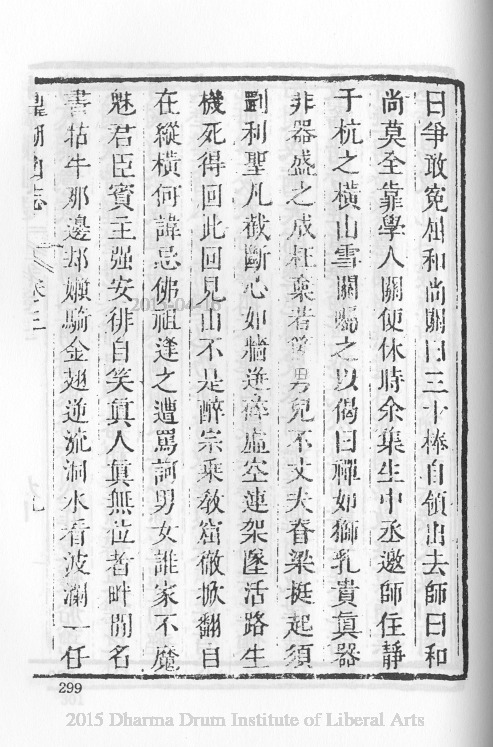 日爭敢寃屈和尚關曰三十棒自領出去師曰和
尚莫全靠學人關便休時余集生中丞邀師住靜
于杭之橫山雪關囑之以偈曰禪如獅乳貴眞器
非器盛之成枉棄若 男兒不丈夫脊梁挺起須
劉利聖凡截斷心如牆迸碎虛空連架 活路生
機死得回此回見山不是醉宗乘敎窟儆掀翻自
在縱橫何諱忌佛祖逢之遭罵詞男女誰家不魔
魅君臣賓主强安徘自笑眞人眞無位者畔閒名
書牯牛那邊却 騎金翅逆流洞水看波瀾一任
湖山志 卷三 九
299
2015 Dharma Drum Institute of Liberal Arts